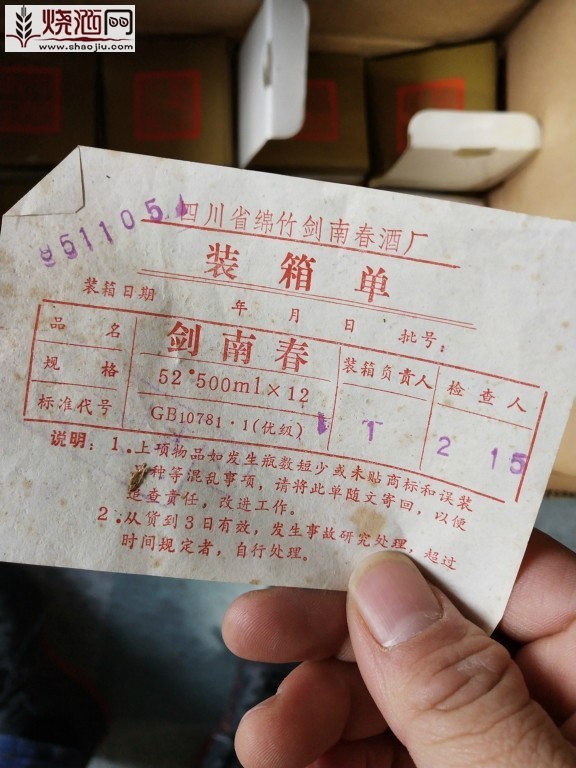 烧酒网
www.shaojiu.com
四川省绵竹剑南春酒厂
951105
装箱单
装箱日期 年 月 日 批号：
品名 剑南春 装箱负责人 检查人
规格 52°500ml×12
标准代号 GB10781·1(优级) 1 2 15
说明：1.上项物品如发生瓶数短少或未贴商标和误装
种等混乱事项，请将此单随文寄回，以便
追查责任，改进工作。
2.从货到3日有效，发生事故研究处理，超过
时间规定者，自行处理。